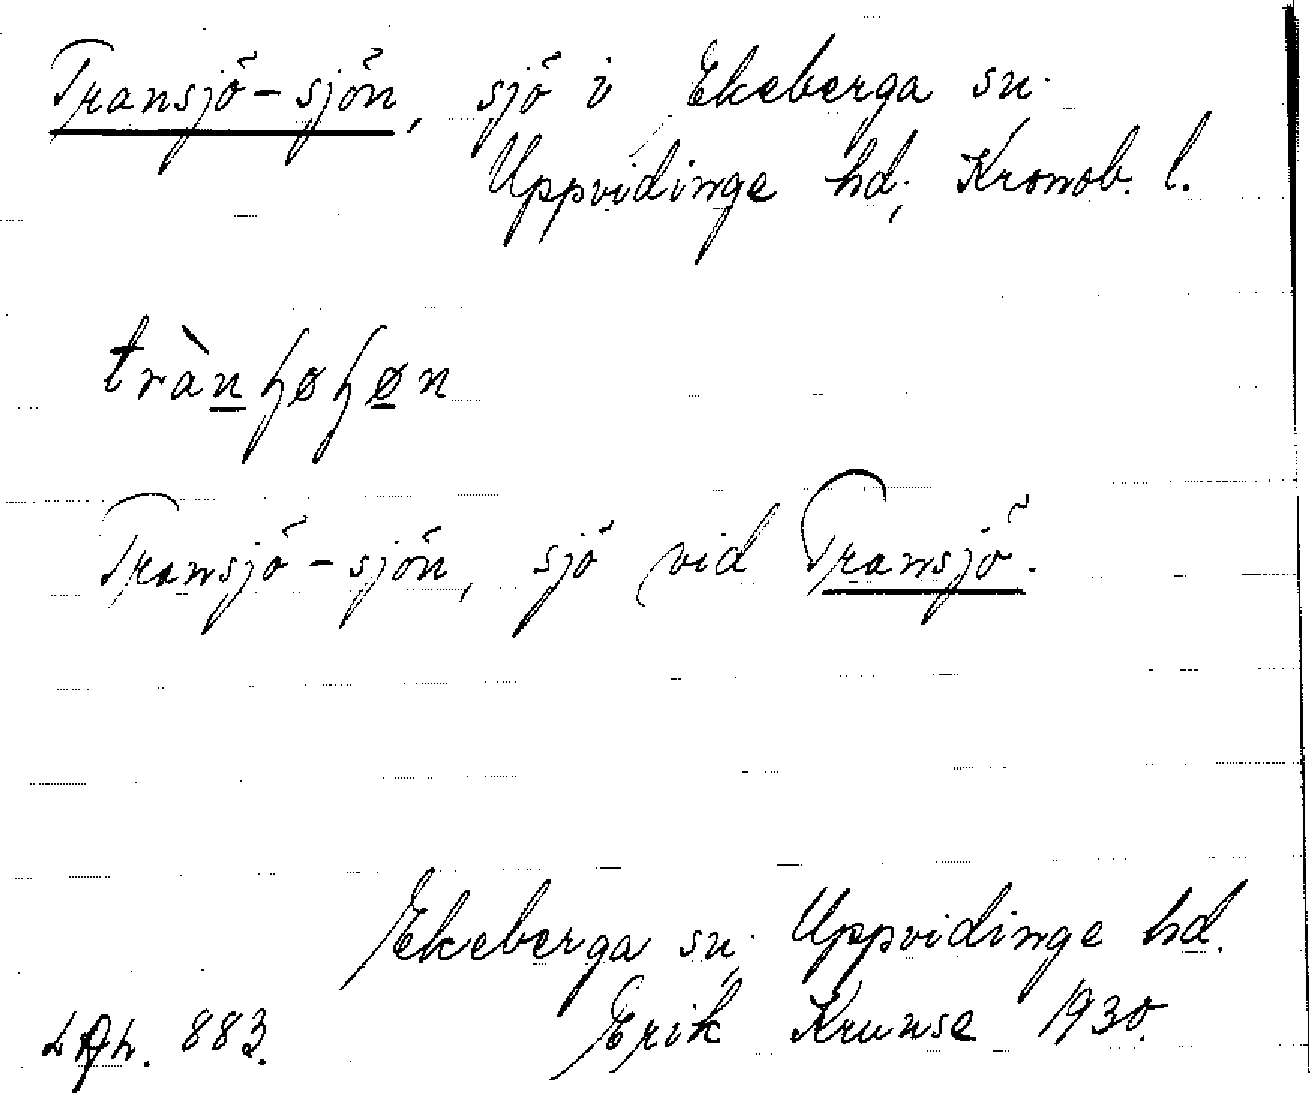 Transjö-sjön, sjö i Ekeberga sn.
Uppvidinge hd., Kronob. l.
Transjö-sjön, sjö vid Transjö.
Ekeberga sn, Uppvidinge hd.
883. Erik Krunse 1930.